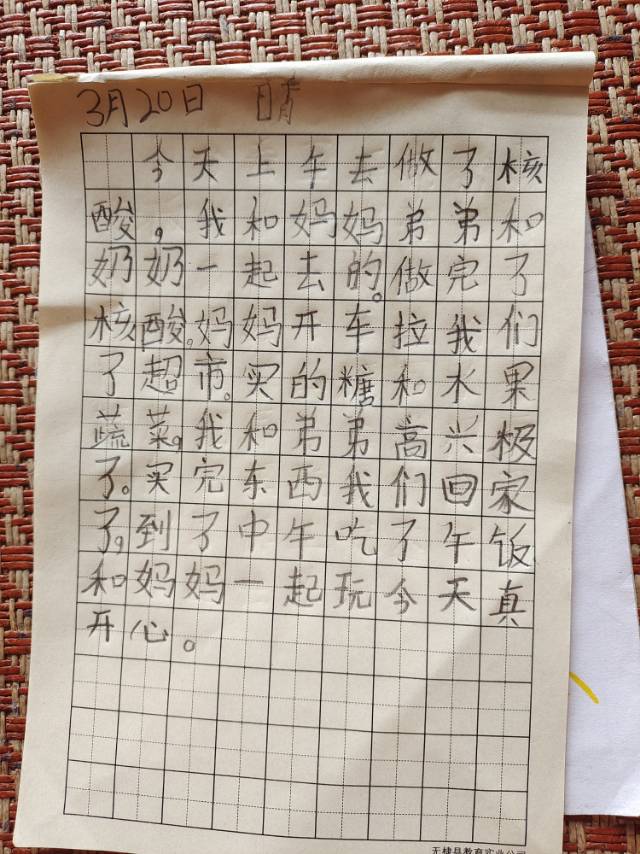 3月20日 晴
今天上午去做了核
酸，我和妈妈弟弟和
奶奶一起去的。做完了
核酸。妈妈开车拉我们
了超市。买的糖和水果
蔬菜。我和弟弟高兴极
了。买完东西我们回家
了，到了中午吃了午饭
和妈妈一起玩今天真
开心。
无棣县教育实业公司